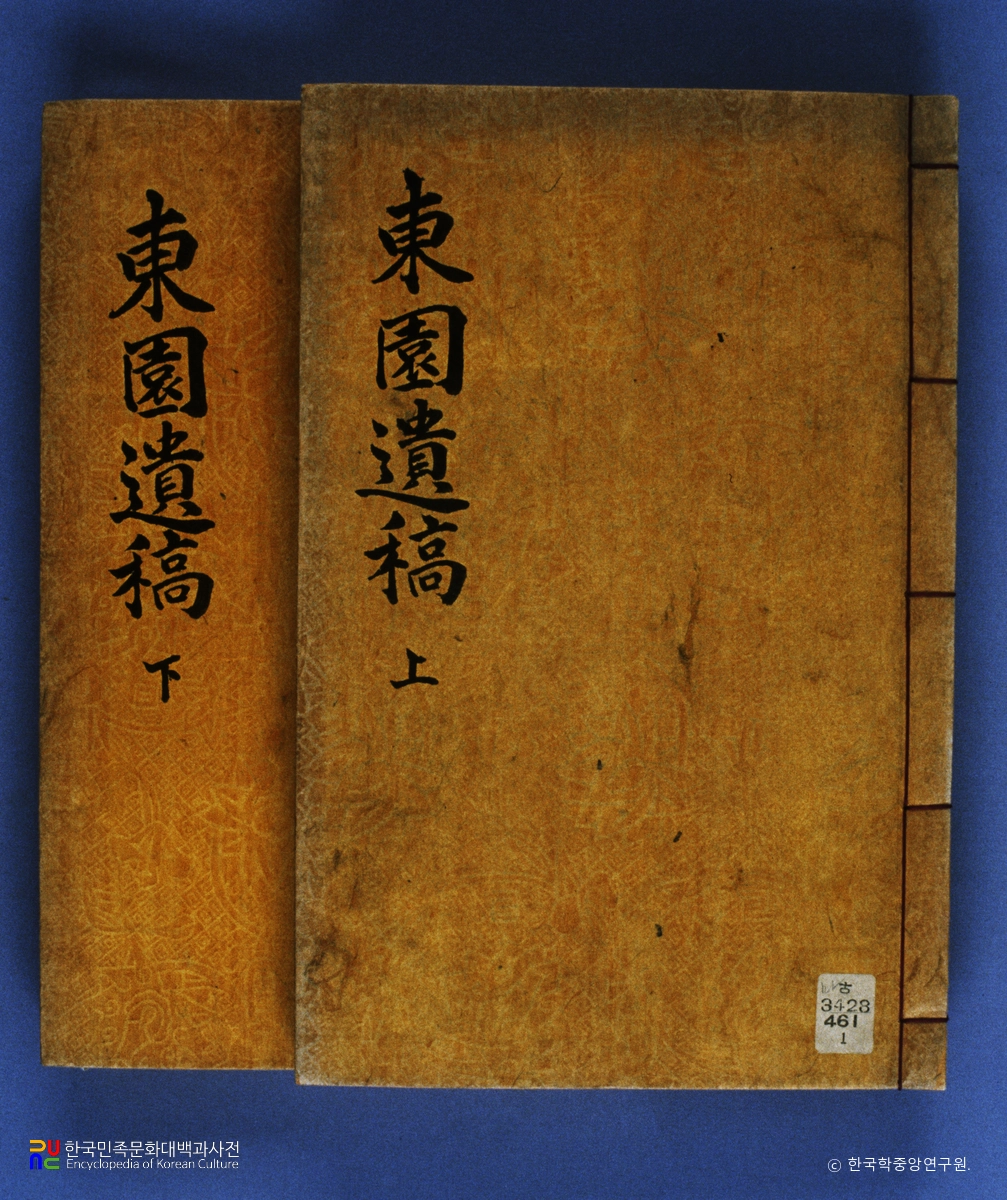 東園遺稿 上
東園遺稿 下
古
3428
461
1
한국민족문화대백과사전
Encyclopedia of Korean Culture
ⓒ 한국학중앙연구원.